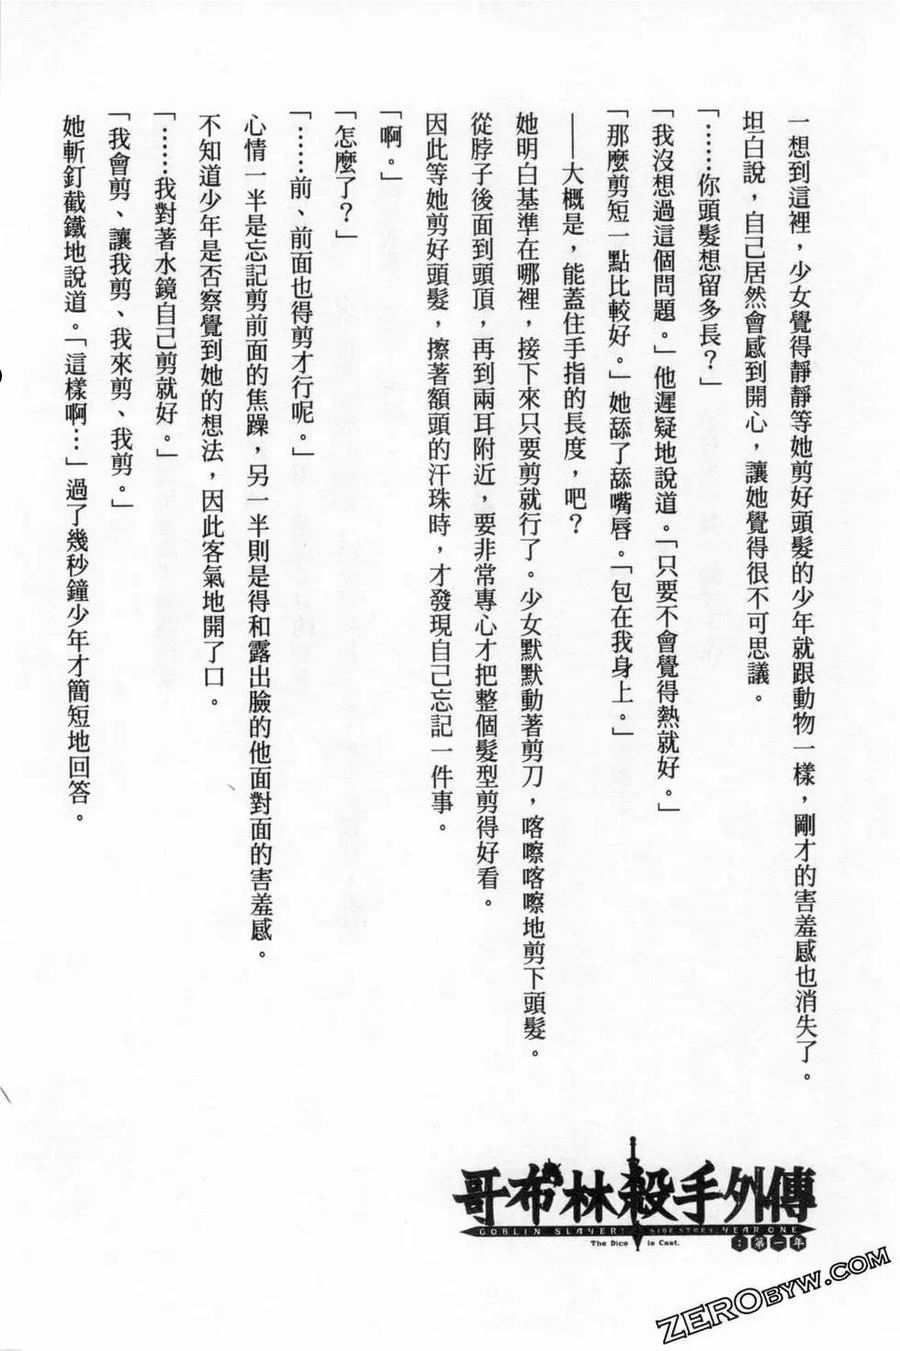 一想到這裡，少女覺得靜靜等她剪好頭髮的少年就跟動物一樣，剛才的害羞感也消失了。
坦白說，自己居然會感到開心，讓她覺得很不可思議。
「……你頭髮想留多長？」
「我沒想過這個問題。」他遲疑地說道。「只要不會覺得熱就好。」
「那麼剪短一點比較好。」她舔了舔嘴唇。「包在我身上。」
——大概是，能蓋住手指的長度，吧？
她明白基準在哪裡，接下來只要剪就行了。少女默默動著剪刀，喀嚓喀嚓地剪下頭髮。
從脖子後面到頭頂，再到兩耳附近，要非常專心才把整個髮型剪得好看。
因此等她剪好頭髮，擦著額頭的汗珠時，才發現自己忘記一件事。
「啊。」
「怎麼了？」
「……前、前面也得剪才行呢。」
心情一半是忘記剪前面的焦躁，另一半則是得和露出臉的他面對面的害羞感。
不知道少年是否察覺到她的想法，因此客氣地開了口。
「……我對著水鏡自己剪就好。」
「我會剪、讓我剪、我來剪、我剪。」
她斬釘截鐵地說道。「這樣啊…」過了幾秒鐘少年才簡短地回答。
哥布林殺手外傳
GOBLIN SLAYER! SIDE STORY: YEAR ONE
：第一年
The Dice is Cast.
ZEROBYW.COM